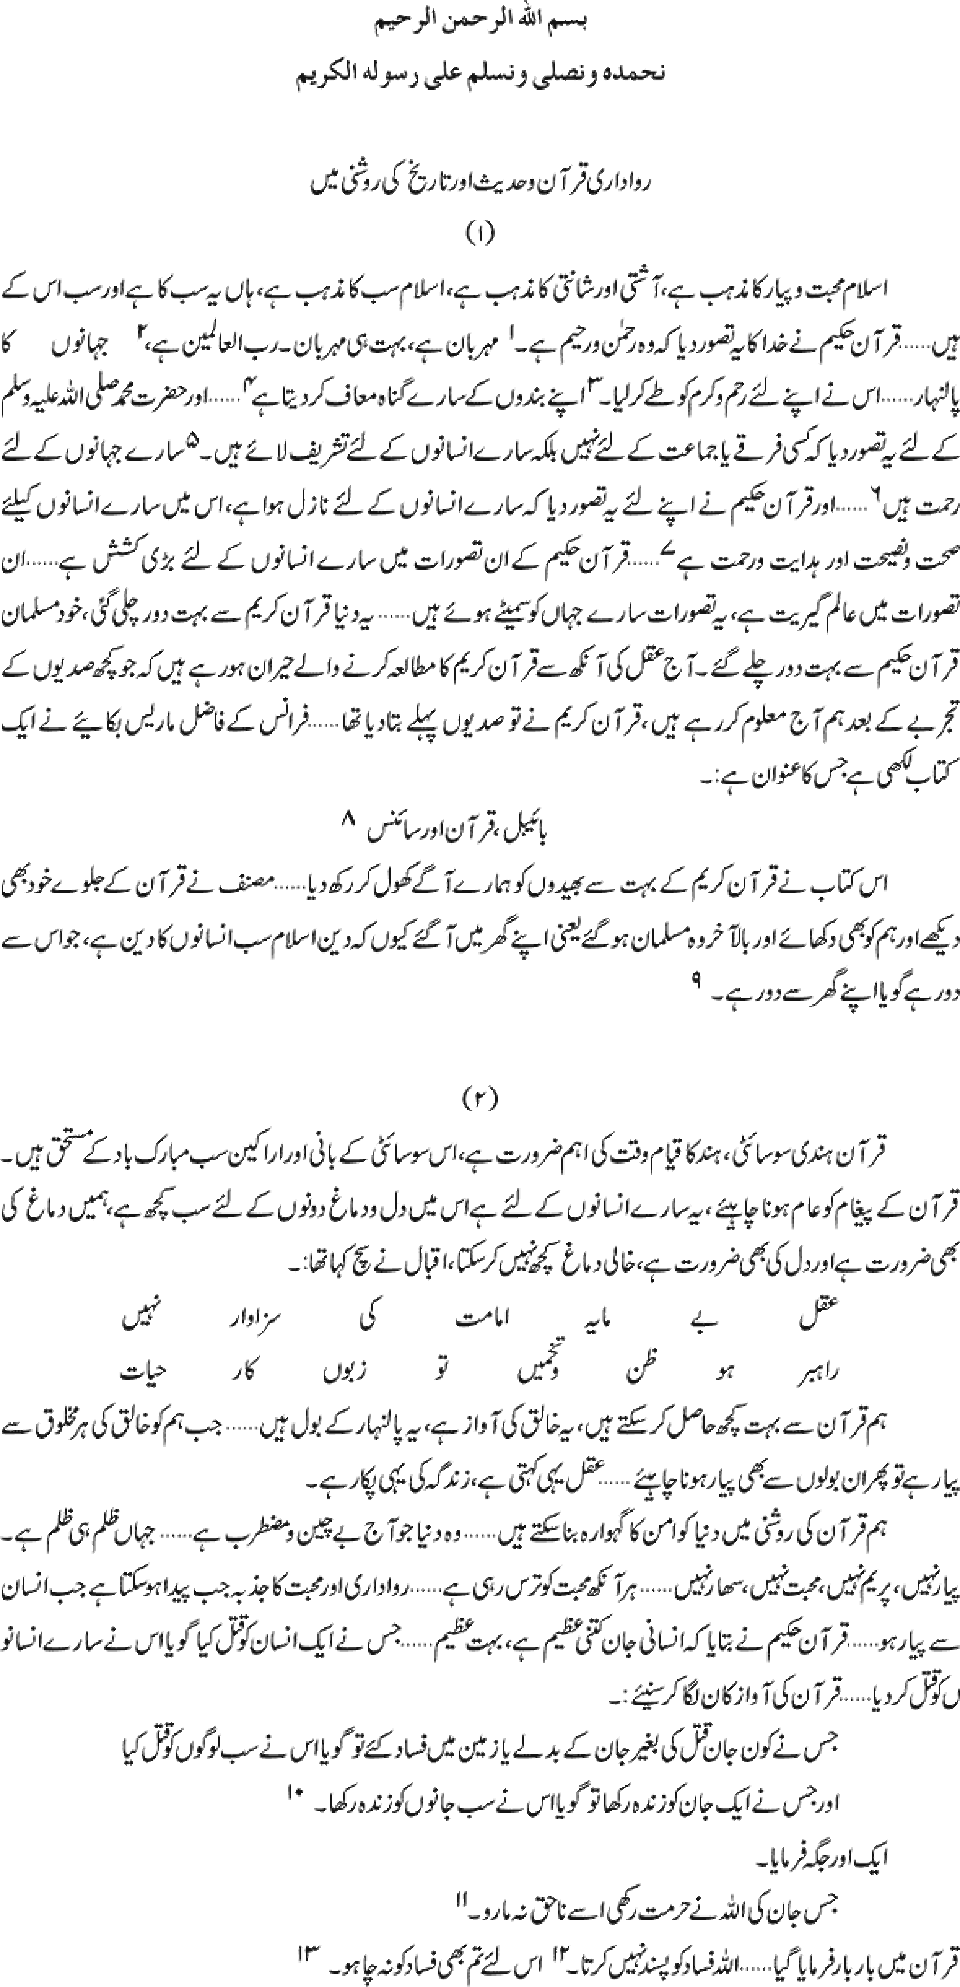 بسم الله الرحمن الرحيم
نحمده ونصلى ونسلم على رسوله الكريم
رواداری قرآن وحدیث اور تاریخ کی روشنی میں
(۱)
اسلام محبت و پیار کا مذہب ہے، آشتی اور شانتی کا مذہب ہے، اسلام سب کا مذہب ہے، ہاں یہ سب کا ہے اور سب اس کے
ہیں......قرآن حکیم نے خدا کا یہ تصور دیا کہ وہ رحمٰن و رحیم ہے۔۱ مہربان ہے، بہت ہی مہربان۔ رب العالمین ہے،۲ جہانوں کا
پالنہار......اس نے اپنے لئے رحم و کرم کو طے کرلیا۔۳ اپنے بندوں کے سارے گناہ معاف کردیتا ہے۴......اور حضرت محمد صلی اللہ علیہ وسلم
کے لئے یہ تصور دیا کہ کسی فرقے یا جماعت کے لئے نہیں بلکہ سارے انسانوں کے لئے تشریف لائے ہیں۔۵ سارے جہانوں کے لئے
رحمت ہیں۶......اور قرآن حکیم نے اپنے لئے یہ تصور دیا کہ سارے انسانوں کے لئے نازل ہوا ہے، اس میں سارے انسانوں کیلئے
صحت و نصیحت اور ہدایت ورحمت ہے۷......قرآن حکیم کے ان تصورات میں سارے انسانوں کے لئے بڑی کشش ہے......ان
تصورات میں عالم گیریت ہے، یہ تصورات سارے جہاں کو سمیٹے ہوئے ہیں......یہ دنیا قرآن کریم سے بہت دور چلی گئی، خود مسلمان
قرآن حکیم سے بہت دور چلے گئے۔ آج عقل کی آنکھ سے قرآن کریم کا مطالعہ کرنے والے حیران ہورہے ہیں کہ جو کچھ صدیوں کے
تجربے کے بعد ہم آج معلوم کررہے ہیں، قرآن کریم نے تو صدیوں پہلے بتادیا تھا......فرانس کے فاضل ماریس بکائیے نے ایک
کتاب لکھی ہے جس کا عنوان ہے:۔
بائیبل، قرآن اور سائنس ۸
اس کتاب نے قرآن کریم کے بہت سے بھیدوں کو ہمارے آگے کھول کر رکھ دیا......مصنف نے قرآن کے جلوے خود بھی
دیکھے اور ہم کو بھی دکھائے اور بالآخر وہ مسلمان ہوگئے یعنی اپنے گھر میں آگئے کیوں کہ دین اسلام سب انسانوں کا دین ہے، جو اس سے
دور ہے گویا اپنے گھر سے دور ہے۔ ۹
(۲)
قرآن ہندی سوسائٹی، ہند کا قیام وقت کی اہم ضرورت ہے، اس سوسائٹی کے بانی اور اراکین سب مبارک باد کے مستحق ہیں۔
قرآن کے پیغام کو عام ہونا چاہیئے، یہ سارے انسانوں کے لئے ہے اس میں دل و دماغ دونوں کے لئے سب کچھ ہے، ہمیں دماغ کی
بھی ضرورت ہے اور دل کی بھی ضرورت ہے، خالی دماغ کچھ نہیں کرسکتا، اقبال نے سچ کہا تھا:۔
عقل بے مایہ امامت کی سزاوار نہیں
راہبر ہو ظن وتخمیں تو زبوں کار حیات
ہم قرآن سے بہت کچھ حاصل کرسکتے ہیں، یہ خالق کی آواز ہے، یہ پالنہار کے بول ہیں......جب ہم کو خالق کی ہر مخلوق سے
پیار ہے تو پھر ان بولوں سے بھی پیار ہونا چاہیئے......عقل یہی کہتی ہے، زندگہ کی یہی پکار ہے۔
ہم قرآن کی روشنی میں دنیا کو امن کا گہوارہ بناسکتے ہیں......وہ دنیا جو آج بے چین و مضطرب ہے......جہاں ظلم ہی ظلم ہے۔
پیار نہیں، پریم نہیں، محبت نہیں، سھار نہیں......ہر آنکھ محبت کو ترس رہی ہے......رواداری اور محبت کا جذبہ جب پیدا ہوسکتا ہے جب انسان
سے پیار ہو......قرآن حکیم نے بتایا کہ انسانی جان کتنی عظیم ہے، بہت عظیم......جس نے ایک انسان کو قتل کیا گویا اس نے سارے انسانو
ں کو قتل کردیا......قرآن کی آواز کان لگا کر سنیئے:۔
جس نے کون جان قتل کی بغیر جان کے بدلے یا زمین میں فساد کئے تو گویا اس نے سب لوگوں کو قتل کیا
اور جس نے ایک جان کو زندہ رکھا تو گویا اس نے سب جانوں کو زندہ رکھا۔ ۱۰
ایک اور جگہ فرمایا۔
جس جان کی اللہ نے حرمت رکھی اسے ناحق نہ مارو۔۱۱
قرآن میں بار بار فرمایا گیا......اللہ فساد کو پسند نہیں کرتا۔۱۲ اس لئے تم بھی فساد کو نہ چاہو۔ ۱۳